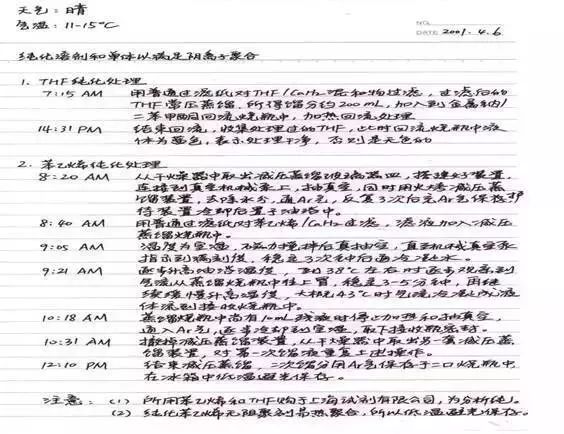 天气:晴
气温:11-15℃
NO.
DATE 2001.4.6
纯化溶剂和单体以满足阴离子聚合
1. THF纯化处理
7:15 AM 用普通过滤纸对THF/CaH₂混和物过滤,过滤后的
THF常压蒸馏,所得馏分约200mL,加入到金属钠/
二苯甲酮回流烧瓶中,加热回流处理
14:31 PM 结束回流,收集处理过的THF,此时回流烧瓶中液
体为蓝色,表示处理干净,否则是无色的
2. 苯乙烯纯化处理
8:20 AM 从干燥器中取出减压蒸馏玻璃器皿,搭建好装置,
连接到真空机械泵上,抽真空,同时用火烤减压蒸
馏装置,去除水分,通Ar气,反复3次后充Ar气保存
待装置冷却后置于油浴中。
8:40 AM 用普通过滤纸对苯乙烯/CaH₂过滤,滤液加入减压
蒸馏烧瓶中。
9:05 AM 温度为室温,不磁力搅拌后真抽空,真空机械真空表
指示到满刻度,稳定3次钟后通冷凝水。
9:21 AM 逐步升高油浴温度,到38℃左右时逐步观察到
气流从蒸馏烧瓶中往上冒,稳定3-5分钟,再继
续缓慢升高温度,大概43℃时气流冷凝成液
体流到接收烧瓶中。
10:18 AM 蒸馏烧瓶中尚有10mL残液时停止加热和抽真空,
通入Ar气,逐步冷却到室温,取下接收瓶密封。
10:31 AM 撤掉减压蒸馏装置,从干燥器中取出另一套减压蒸
馏装置,对第一次馏液重复上述操作。
12:10 PM 结束减压蒸馏,二次馏分用Ar气保存于二口烧瓶中
在冰箱中低温避光保存。
注意:(1) 所用苯乙烯和THF购于上海试剂有限公司,为分析纯。
(2) 纯化苯乙烯无阻聚剂易热聚合,所以低温避光保存。